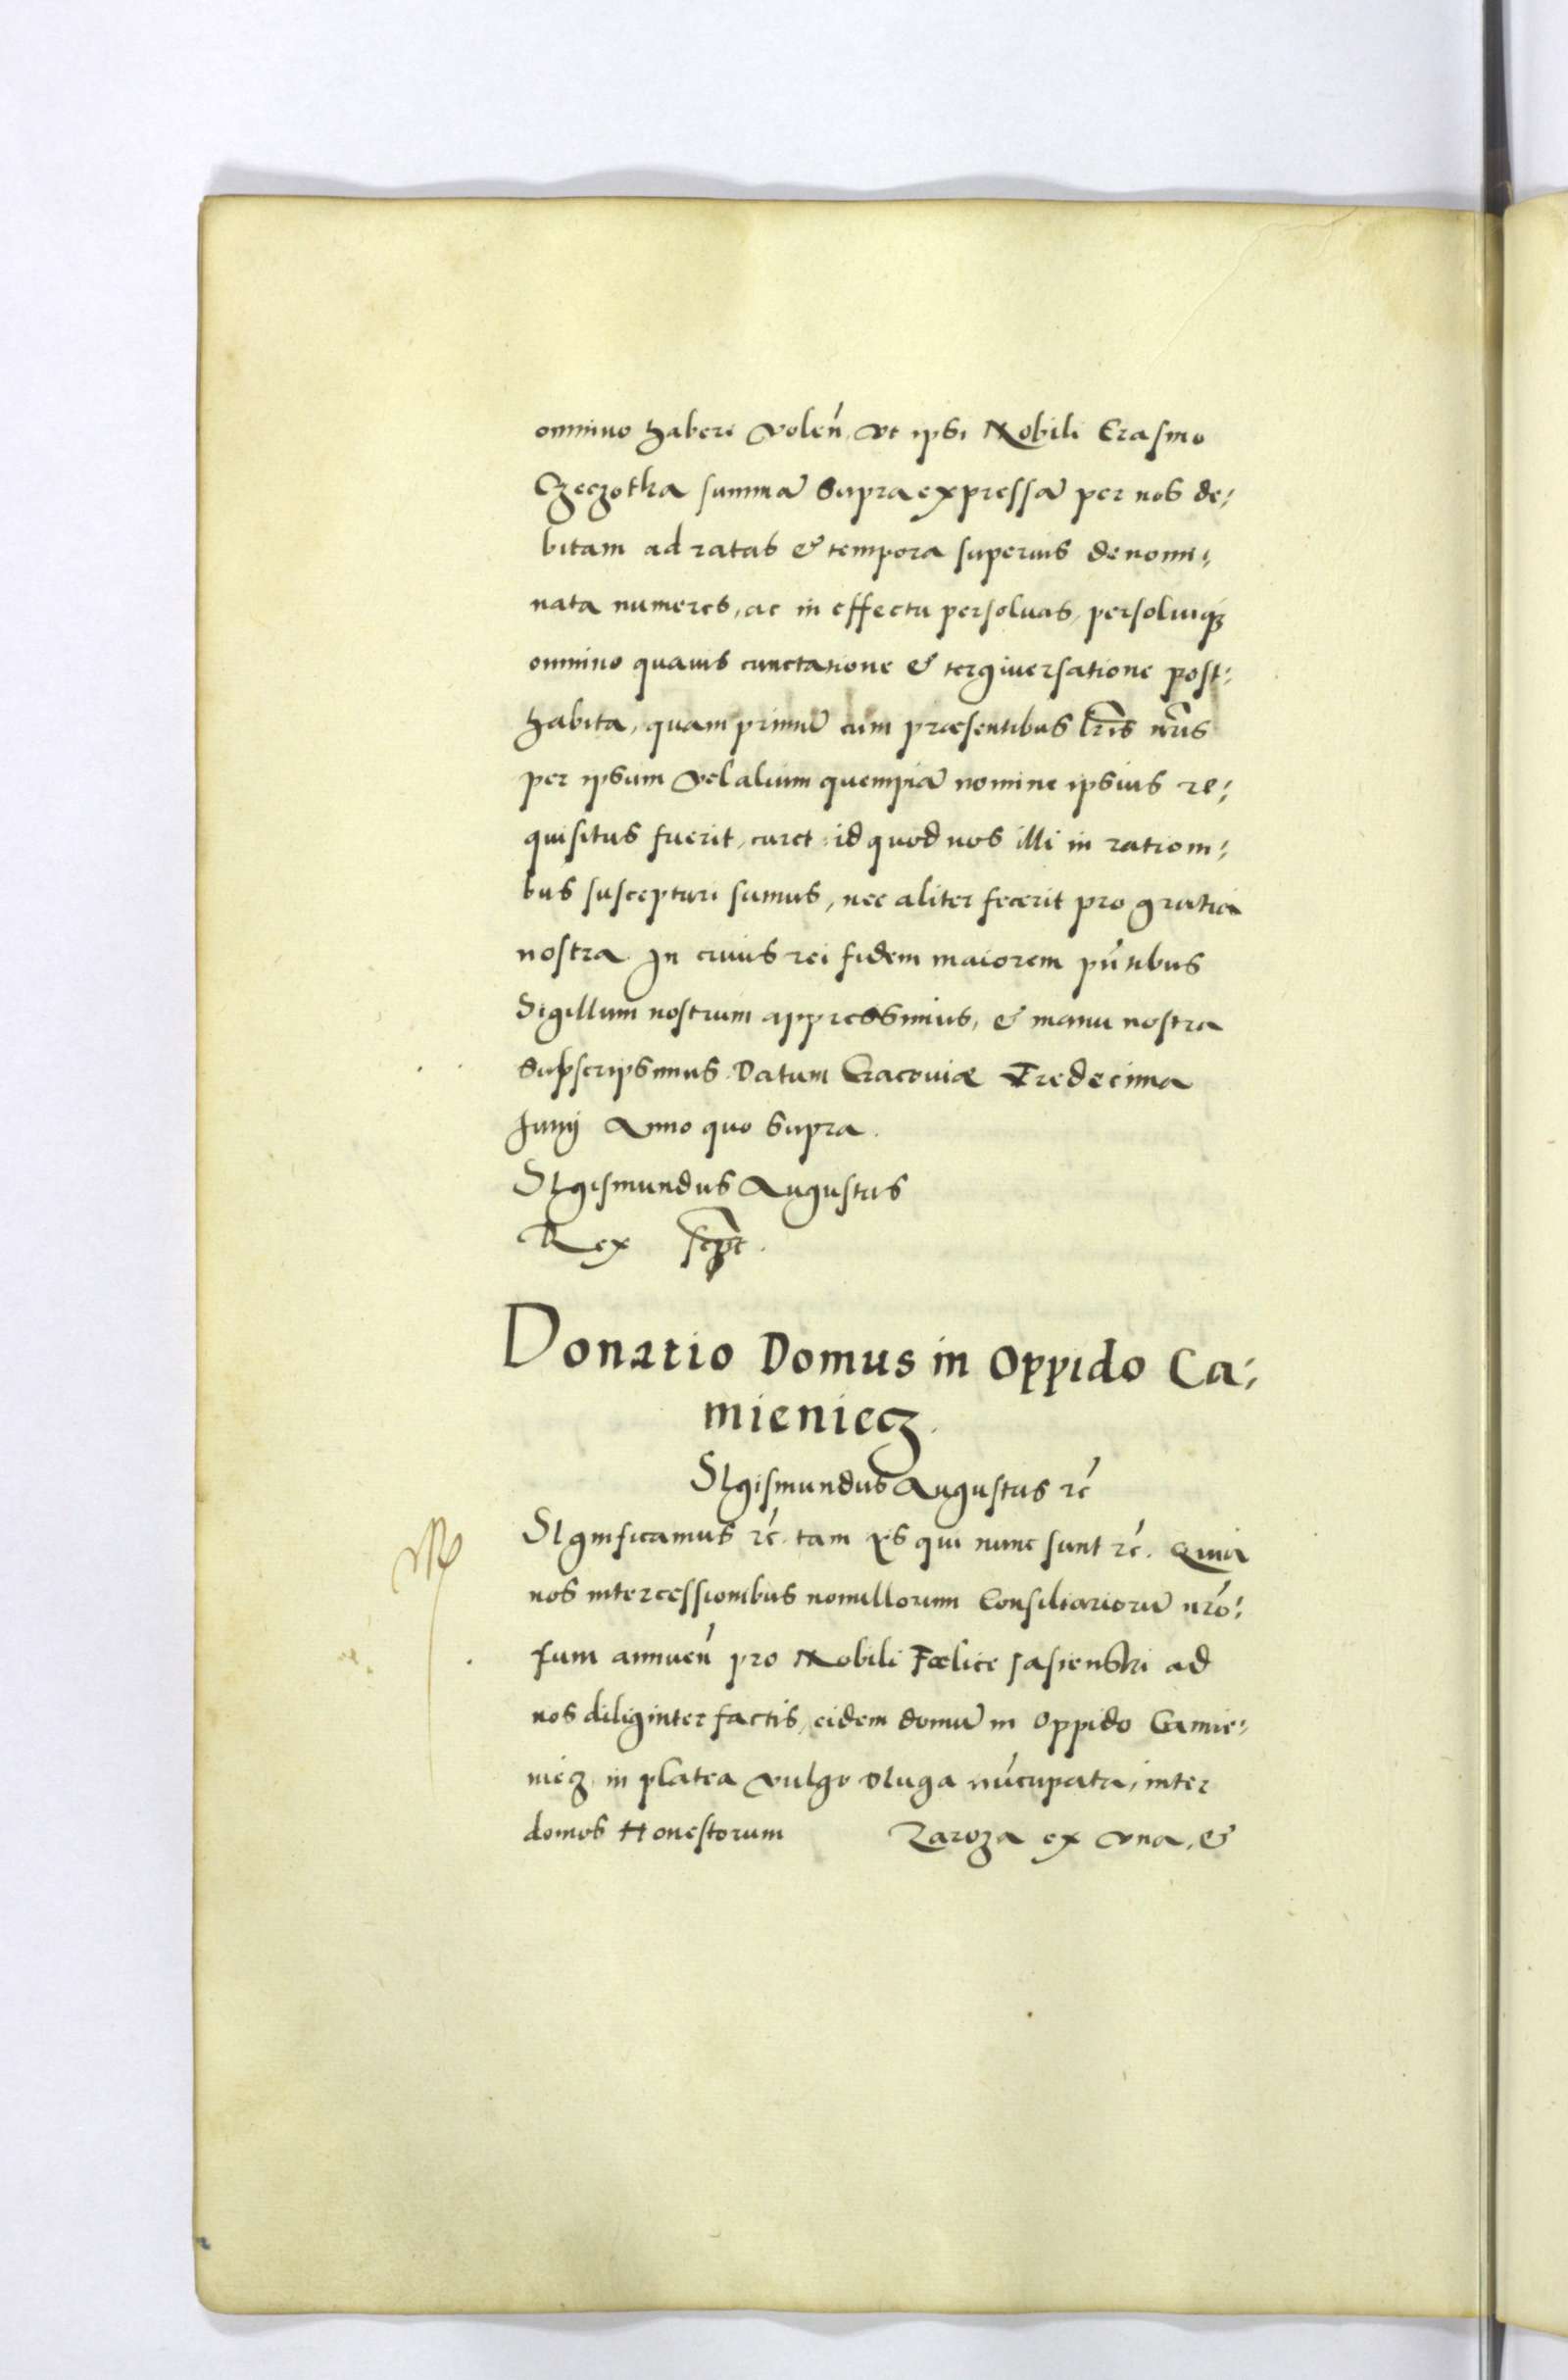 omnino haberi volen̄, vt ipsi Nobili Erasmo
Czeczotka summā supraexpressā per nos de:
bitam ad ratas & tempora superius denomi:
nata numeret, ac in effectu persoluat, persoluiq3
omnino quauis cunctatione & tergiuersatione post:
habita, quam primū cum præsentibus lr̄is nr̄is
per ipsum vel alium quempiā nomine ipsius re:
quisitus fuerit, curet, id quod nos illi in rationi:
bus suscepturi sumus, nec aliter fecerit pro gratia
nostra. In cuius rei fidem maiorem pn̄tibus
Sigillum nostrum appressimus, & manu nostra
subscripsimus. Datum Cracouiæ Tredecima
Junij Anno quo supra.
SIgismundus Augustus
Rex sc̄pt.
Donatio Domus in Oppido Ca:
mieniecz.
SIgismundus Augustus rc̄
SIgnificamus rc̄. tam ijs qui nunc sunt rc̄. Quia
nos intercessionibus nonullorum Consiliariorū nr̄o:
rum annuen̄ pro Nobili Fœlice Jasienski ad
nos diliginter factis, eidem domū in Oppido Camie:
niecz in platea vulgo Dluga nūcupata, inter
domos Honestorum Zaroza ex vna, &